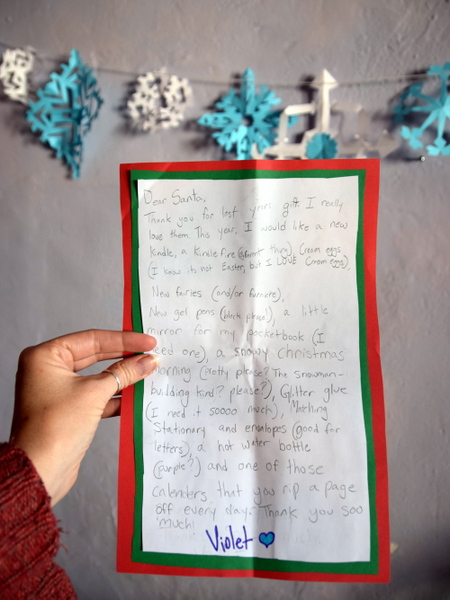 Dear Santa,
Thank you for last years gift. I really
love them. This year, I would like a new
kindle, a Kindle fire (different thing), Cream eggs
(I know its not Easter, but I LOVE Cream eggs),
New fairies (and/or furniture),
New gel pens (black please!), a little
mirror for my pocketbook (I
need one), a snowy christmas
morning (Pretty please? The snowman-
building kind? please?), Glitter glue
(I need it soooo much), Matching
Stationary and envelopes (good for
letters), a hot water bottle
(purple?) and one of those
calenders that you rip a page
off every day. Thank you soo
much!
Violet